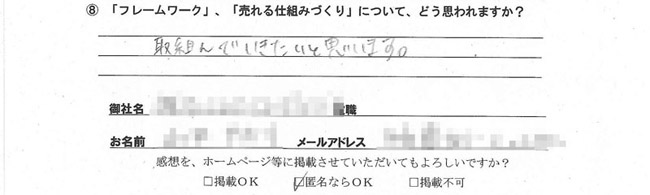 ⑧「フレームワーク」、「売れる仕組みづくり」について、どう思われますか？
取組んでいきたいと思います。
御社名 役職
お名前 メールアドレス
感想を、ホームページ等に掲載させていただいてもよろしいですか？
□掲載OK ☑匿名ならOK □掲載不可